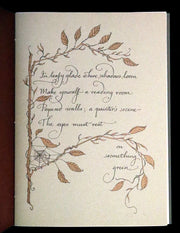 In leafy glade where shadows loom
Make yourself a reading room
Papered walls; a painter's scene
The eyes must rest
on
something
green